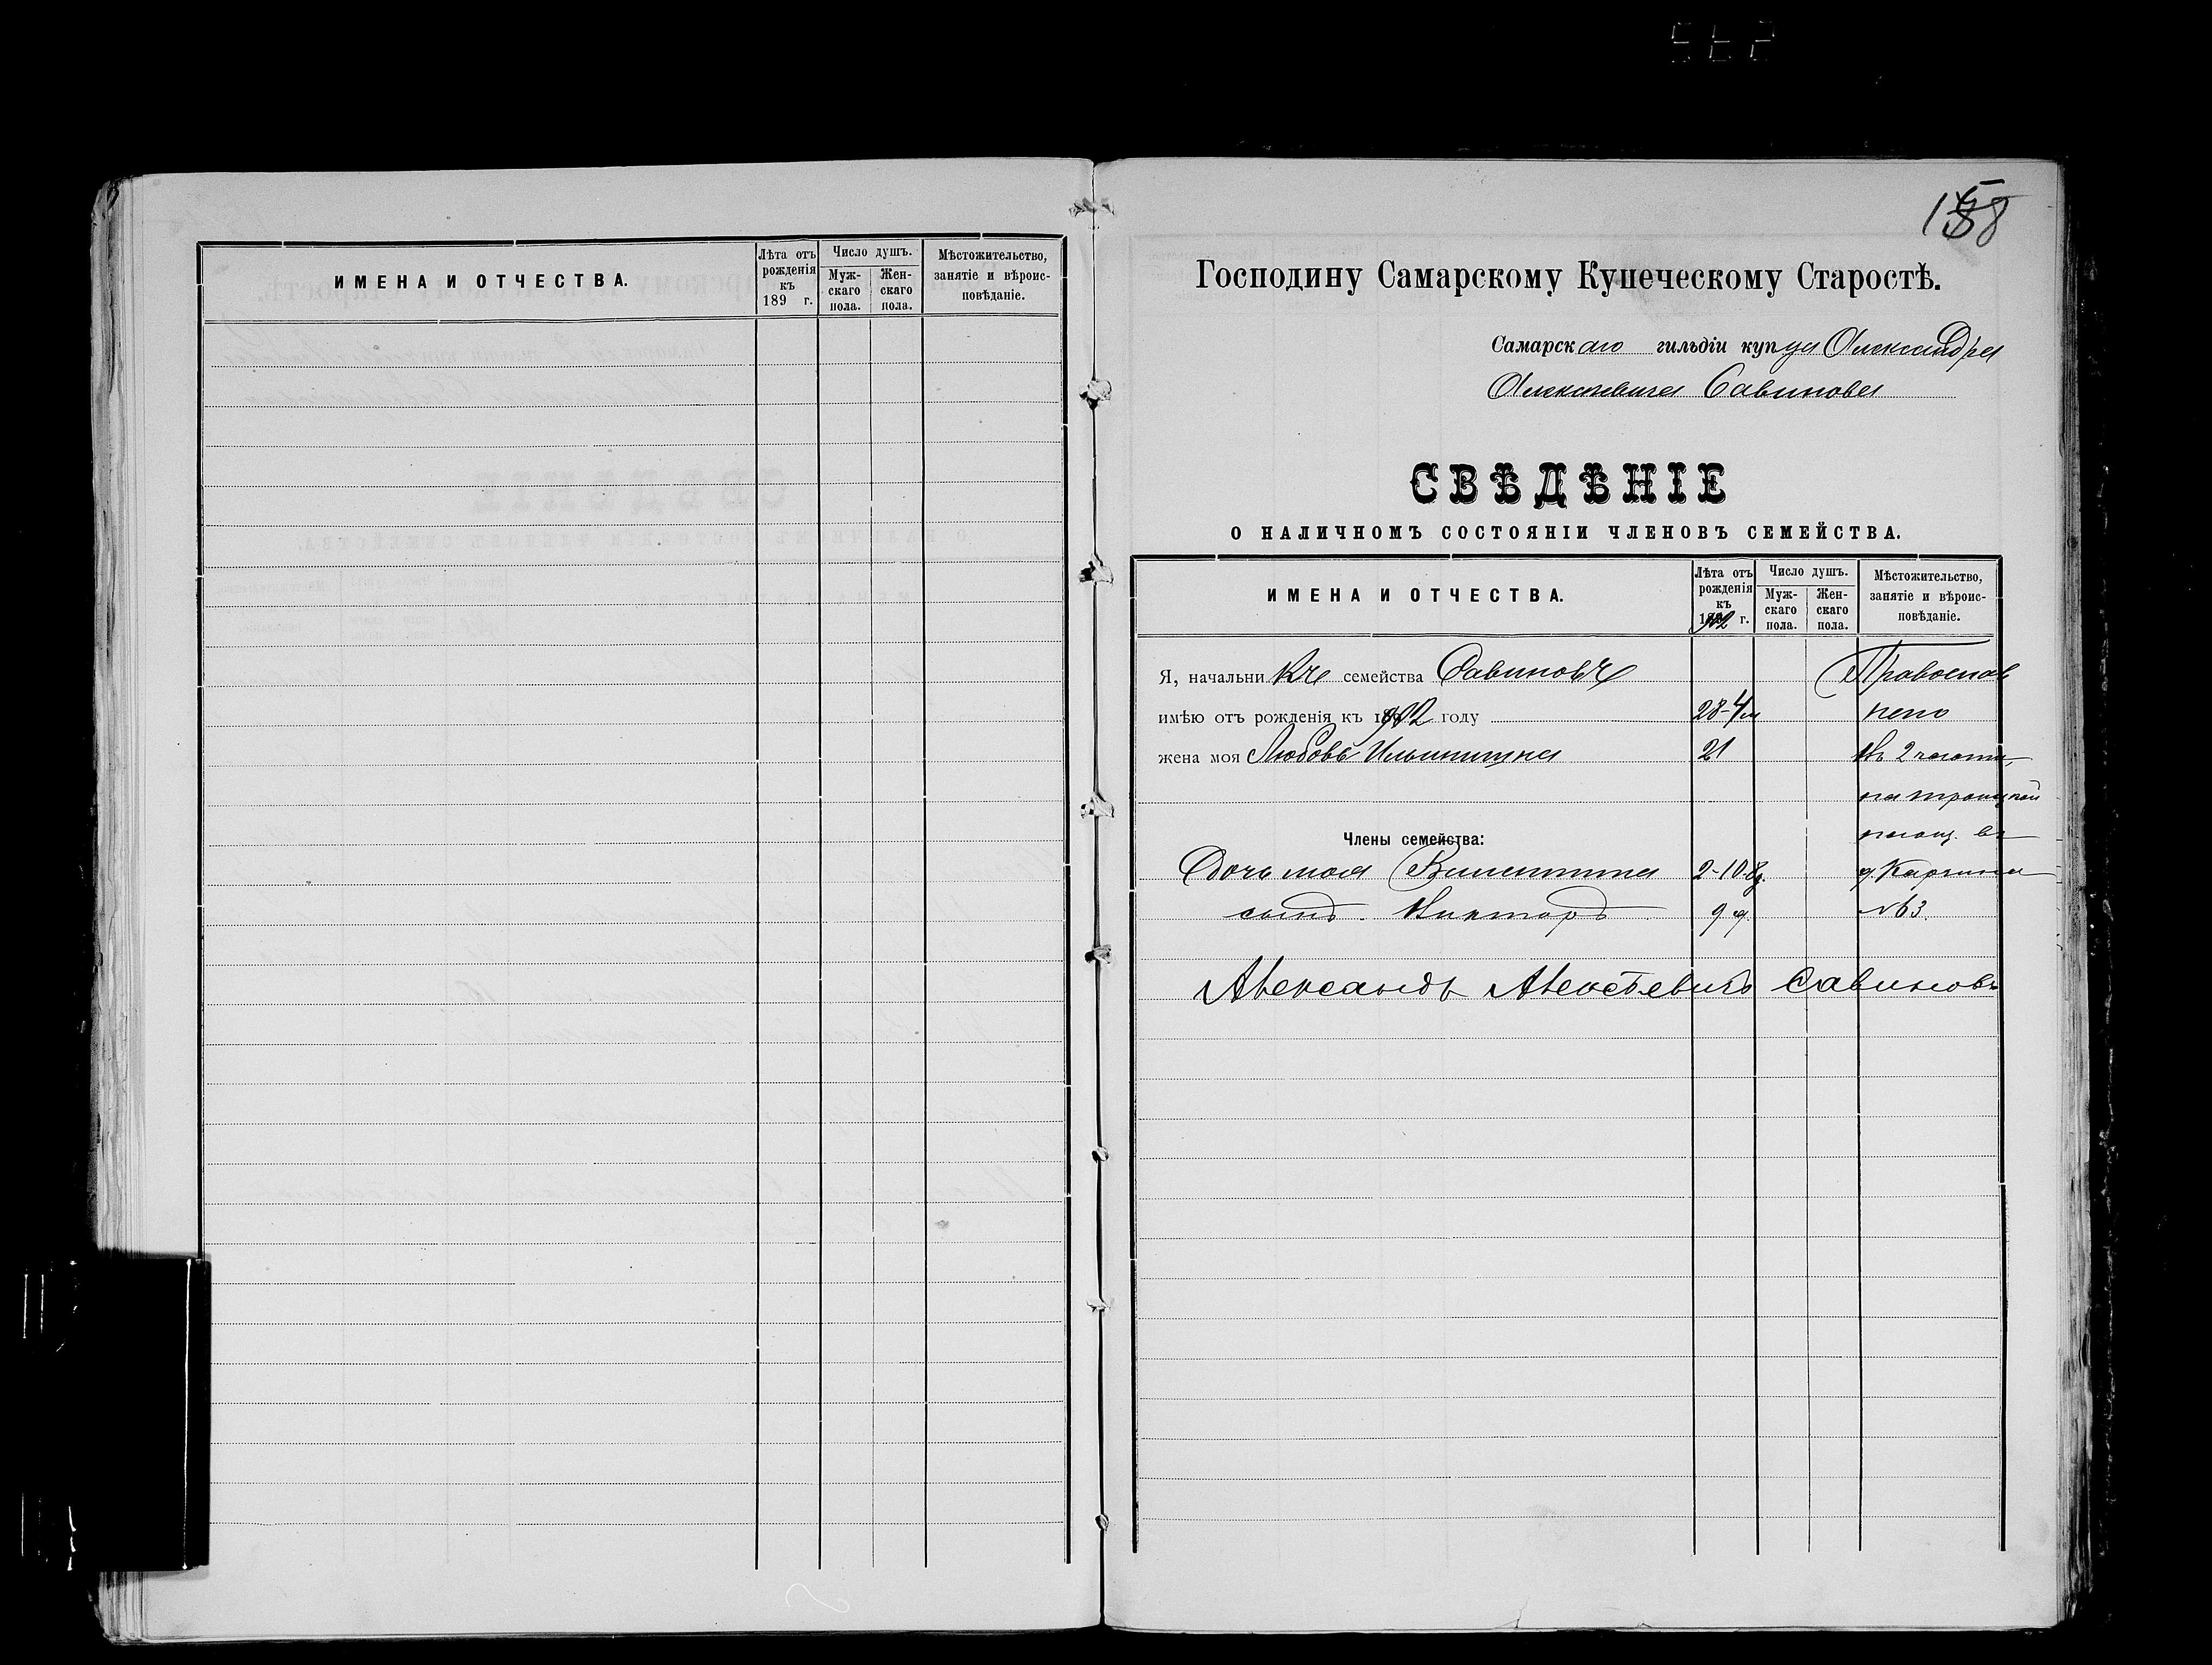 ИМЕНА И ОТЧЕСТВА.
Лѣта отъ рожденія къ 189 г.
Число душъ.
Мужскаго пола.
Женскаго пола.
Мѣстожительство, занятіе и вѣроисповѣданіе.
158
Господину Самарскому Купеческому Старостѣ.
Самарскаго гильдіи купца Александра
Алексѣевича Савинова
СВѢДѢНІЕ
О НАЛИЧНОМЪ СОСТОЯНІИ ЧЛЕНОВЪ СЕМЕЙСТВА.
ИМЕНА И ОТЧЕСТВА.
Лѣта отъ
рожденія
къ
1902 г.
Число душъ.
Муж-
скаго
пола.
Жен-
скаго
пола.
Мѣстожительство,
занятіе и вѣроис-
повѣданіе.
Я, начальникъ семейства Савиновъ Православ
имѣю отъ рожденія къ 1902 году 28-4м
жена моя Любовь Ильинична 21 Въ 2 части,
на троицкой
Члены семейства: площ. въ
Дочь моя Валентина 2-10 д.
сынъ Викторъ 9 №63.
Александъ Алексѣевичъ Савиновъ